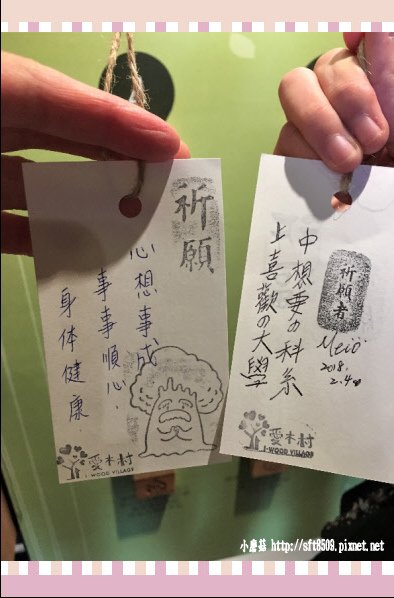 祈願
心想事成
事事順心.
身体健康.
愛木村
I-WOOD VILLAGE
中想要の科系
上喜歡の大學
祈願者
Meiö
2018.
2.4
愛木村
I-WOOD VILLAGE
小磨菇 http://sft8509.pixnet.net